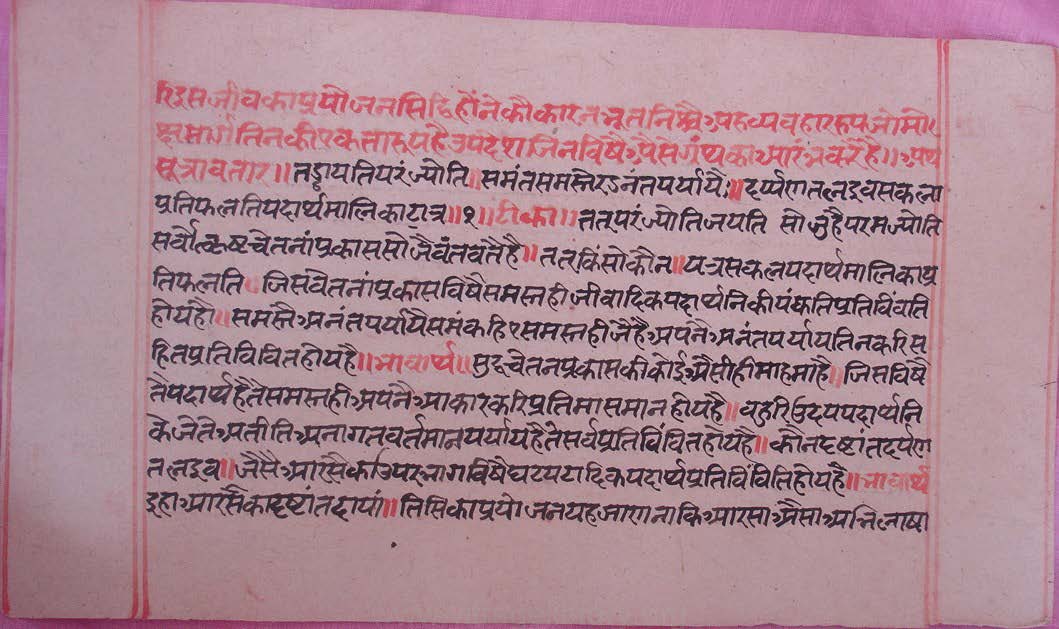 करि इस जीवका प्रयोजनसिद्धि होंनेकौ कारनभूत निश्चै अर व्यवहाररूप जो मो
क्षमार्ग तिनकी एकतारूप है उपदेश जिनविषै ऐसे ग्रंथका आरंभ करै है॥ अथ
सूत्रावतार॥ तज्जयति परं ज्योति॥ समं समस्तैरऽनंतपर्यायैः॥ दर्प्पणतल इव सकला
प्रतिफलति पदार्थमालिका यत्र॥१॥ टीका॥ तत् परं ज्योति जयति सो जु है परम ज्योति
सर्वोत्कृष्ट चेतनां प्रकास सो जैवंत वर्त्तै है॥ तत् किं सो कौन॥ यत्र सकल पदार्थमालिका प्र
तिफलति॥ जिस चेतनां प्रकास विषै समस्त ही जीवादिक पदार्थनिकी पंकति प्रतिविंवति
होय है॥ समस्तै अनंतपर्यायै समं कहिए समस्त ही जै है अपनै अनंत पर्याय तिन करि स
हित प्रतिविंवित होय है॥ भावार्थ॥ सुद्ध चेतन प्रकास की कोई अैसीही माहमा है॥ जिस विषै
जेते पदार्थ है ते समस्त ही अपनै आकार करि प्रतिभासमान होय है॥ वहुरि उदय पदार्थनि
के जेते अतीति अनागत वर्तमान पर्याय है ते सर्व प्रतिविंवित होय है॥ कौन दृष्टांत दर्पण
तल इव॥ जैसै आरसैका उपर भाग विषै घटपटादिक पदार्थ प्रतिविंविति होय है॥ भावार्थ
इहा आरसैका दृष्टांत दीया॥ तिसिका प्रयोजन यह जाणना कि आरसा अैसा अभिलाषा